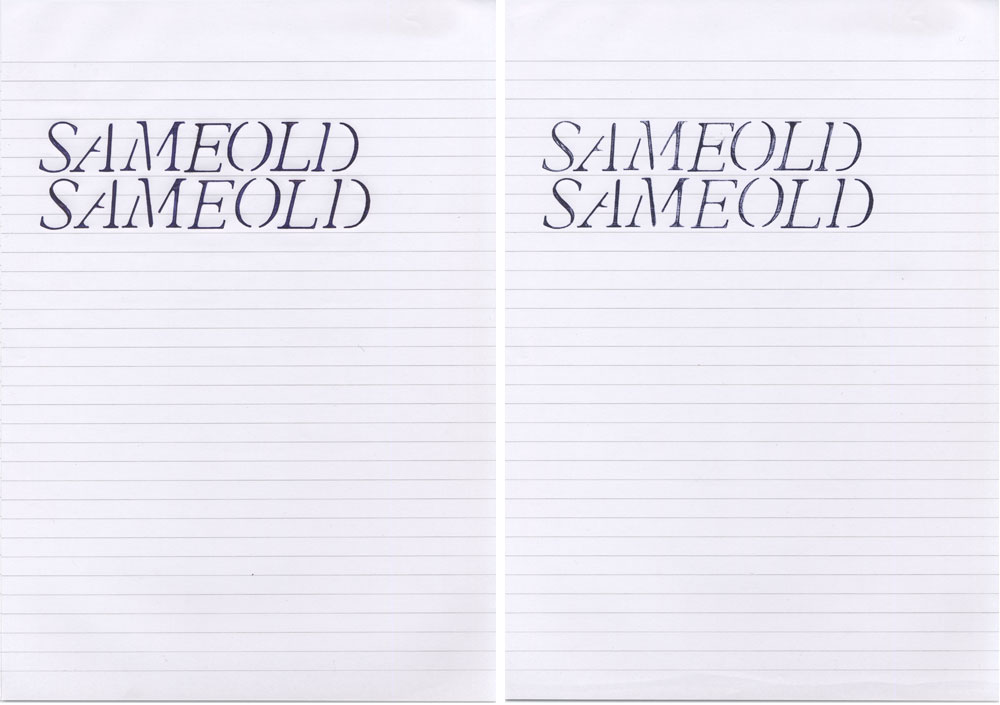 SAMEOLD
SAMEOLD
SAMEOLD
SAMEOLD